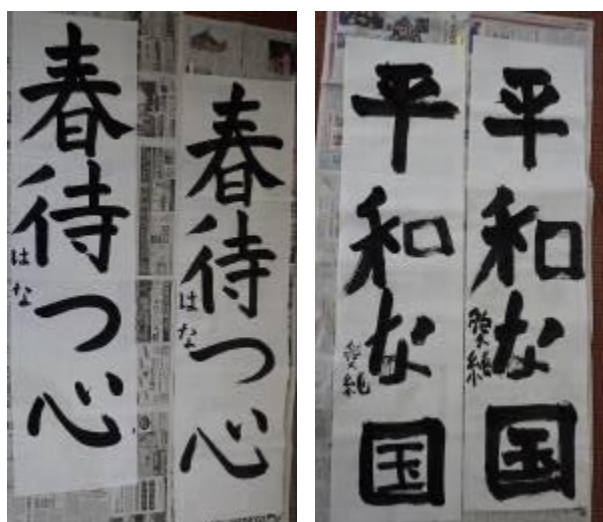 春待つ心
はな
春待つ心
はな
平和な国
平和な国